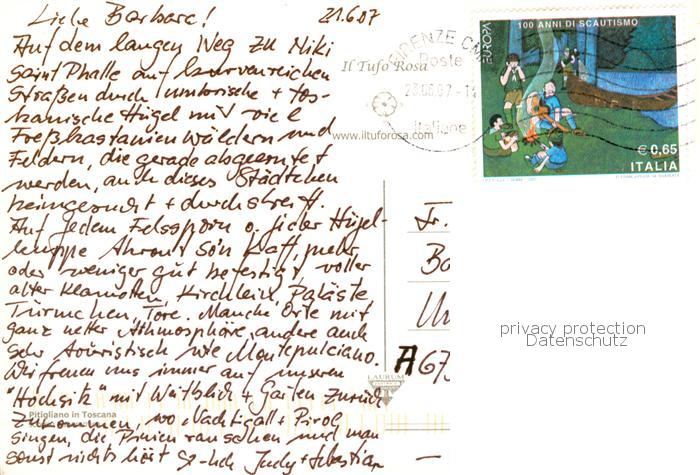 Liebe Barbara! 21.6.07
Auf dem langen Weg zu Niki
Saint Phalle auf kurvenreichen
Straßen durch umbrische + tos-
kanische Hügel mit viel
Eßkastanienwäldern und
Feldern, die gerade abgeerntet
werden, auch dieses Städtchen
heimgesucht + durchstreift.
Auf jedem Felssporn o. jeder Hügel-
kuppe thront so'n Kaff, mehr
oder weniger gut befestigt, voller
alter Klamotten, Kirchlein, Paläste
Türmchen, Tore. Manche Orte mit
ganz netter Athmosphäre, andere auch
sehr touristisch wie Montepulciano.
Wir freuen uns immer auf unseren
"Hochsitz" mit Weitblick + Garten zurück
zukommen, wo Nachtigall + Pirol
singen, die Pinien rauschen und man
sonst nichts hört Judy + Sebastian
Il Tufo Rosa
www.iltuforosa.com
LAURUM
Pitigliano in Toscana
FIRENZE C
Poste
italiane
EUROPA
100 ANNI DI SCAUTISMO
€ 0,65
ITALIA
Fr.
Ba
A 673
privacy protection
Datenschutz